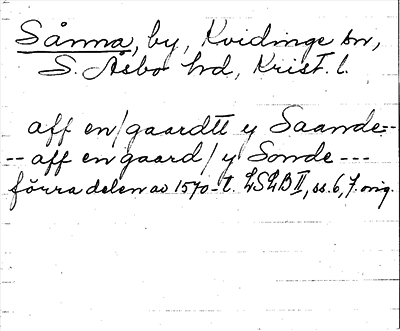 Sånna, by, Kvidinge sn,
S. Åsbo hd, Krist. l.
aff en/gaardtt y Saande--
-- aff en gaard/y Sonde ---
förra delen av 1570-t. LSLB II, ss. 6, 7. orig.